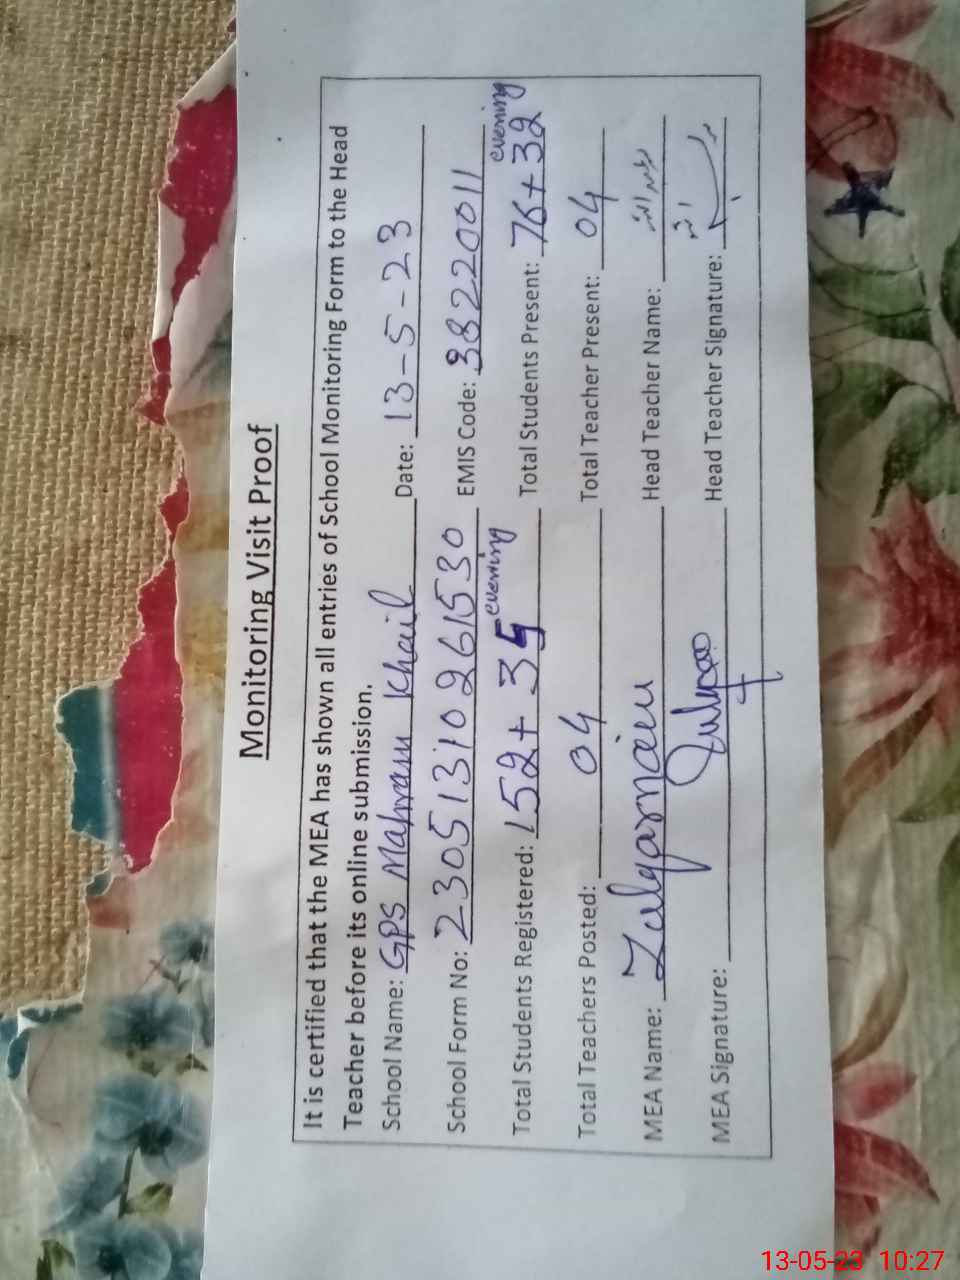 Monitoring Visit Proof
It is certified that the MEA has shown all entries of School Monitoring Form to the Head
Teacher before its online submission.
School Name: GPS Mahram Khail Date: 13-5-23
School Form No: 23051310261530 EMIS Code: 38220011
Total Students Registered: 152+35 evening Total Students Present: 76+32 evening
Total Teachers Posted: 04 Total Teacher Present: 04
MEA Name: Zulqarnain Head Teacher Name:
MEA Signature: Head Teacher Signature:
13-05-23 10:27